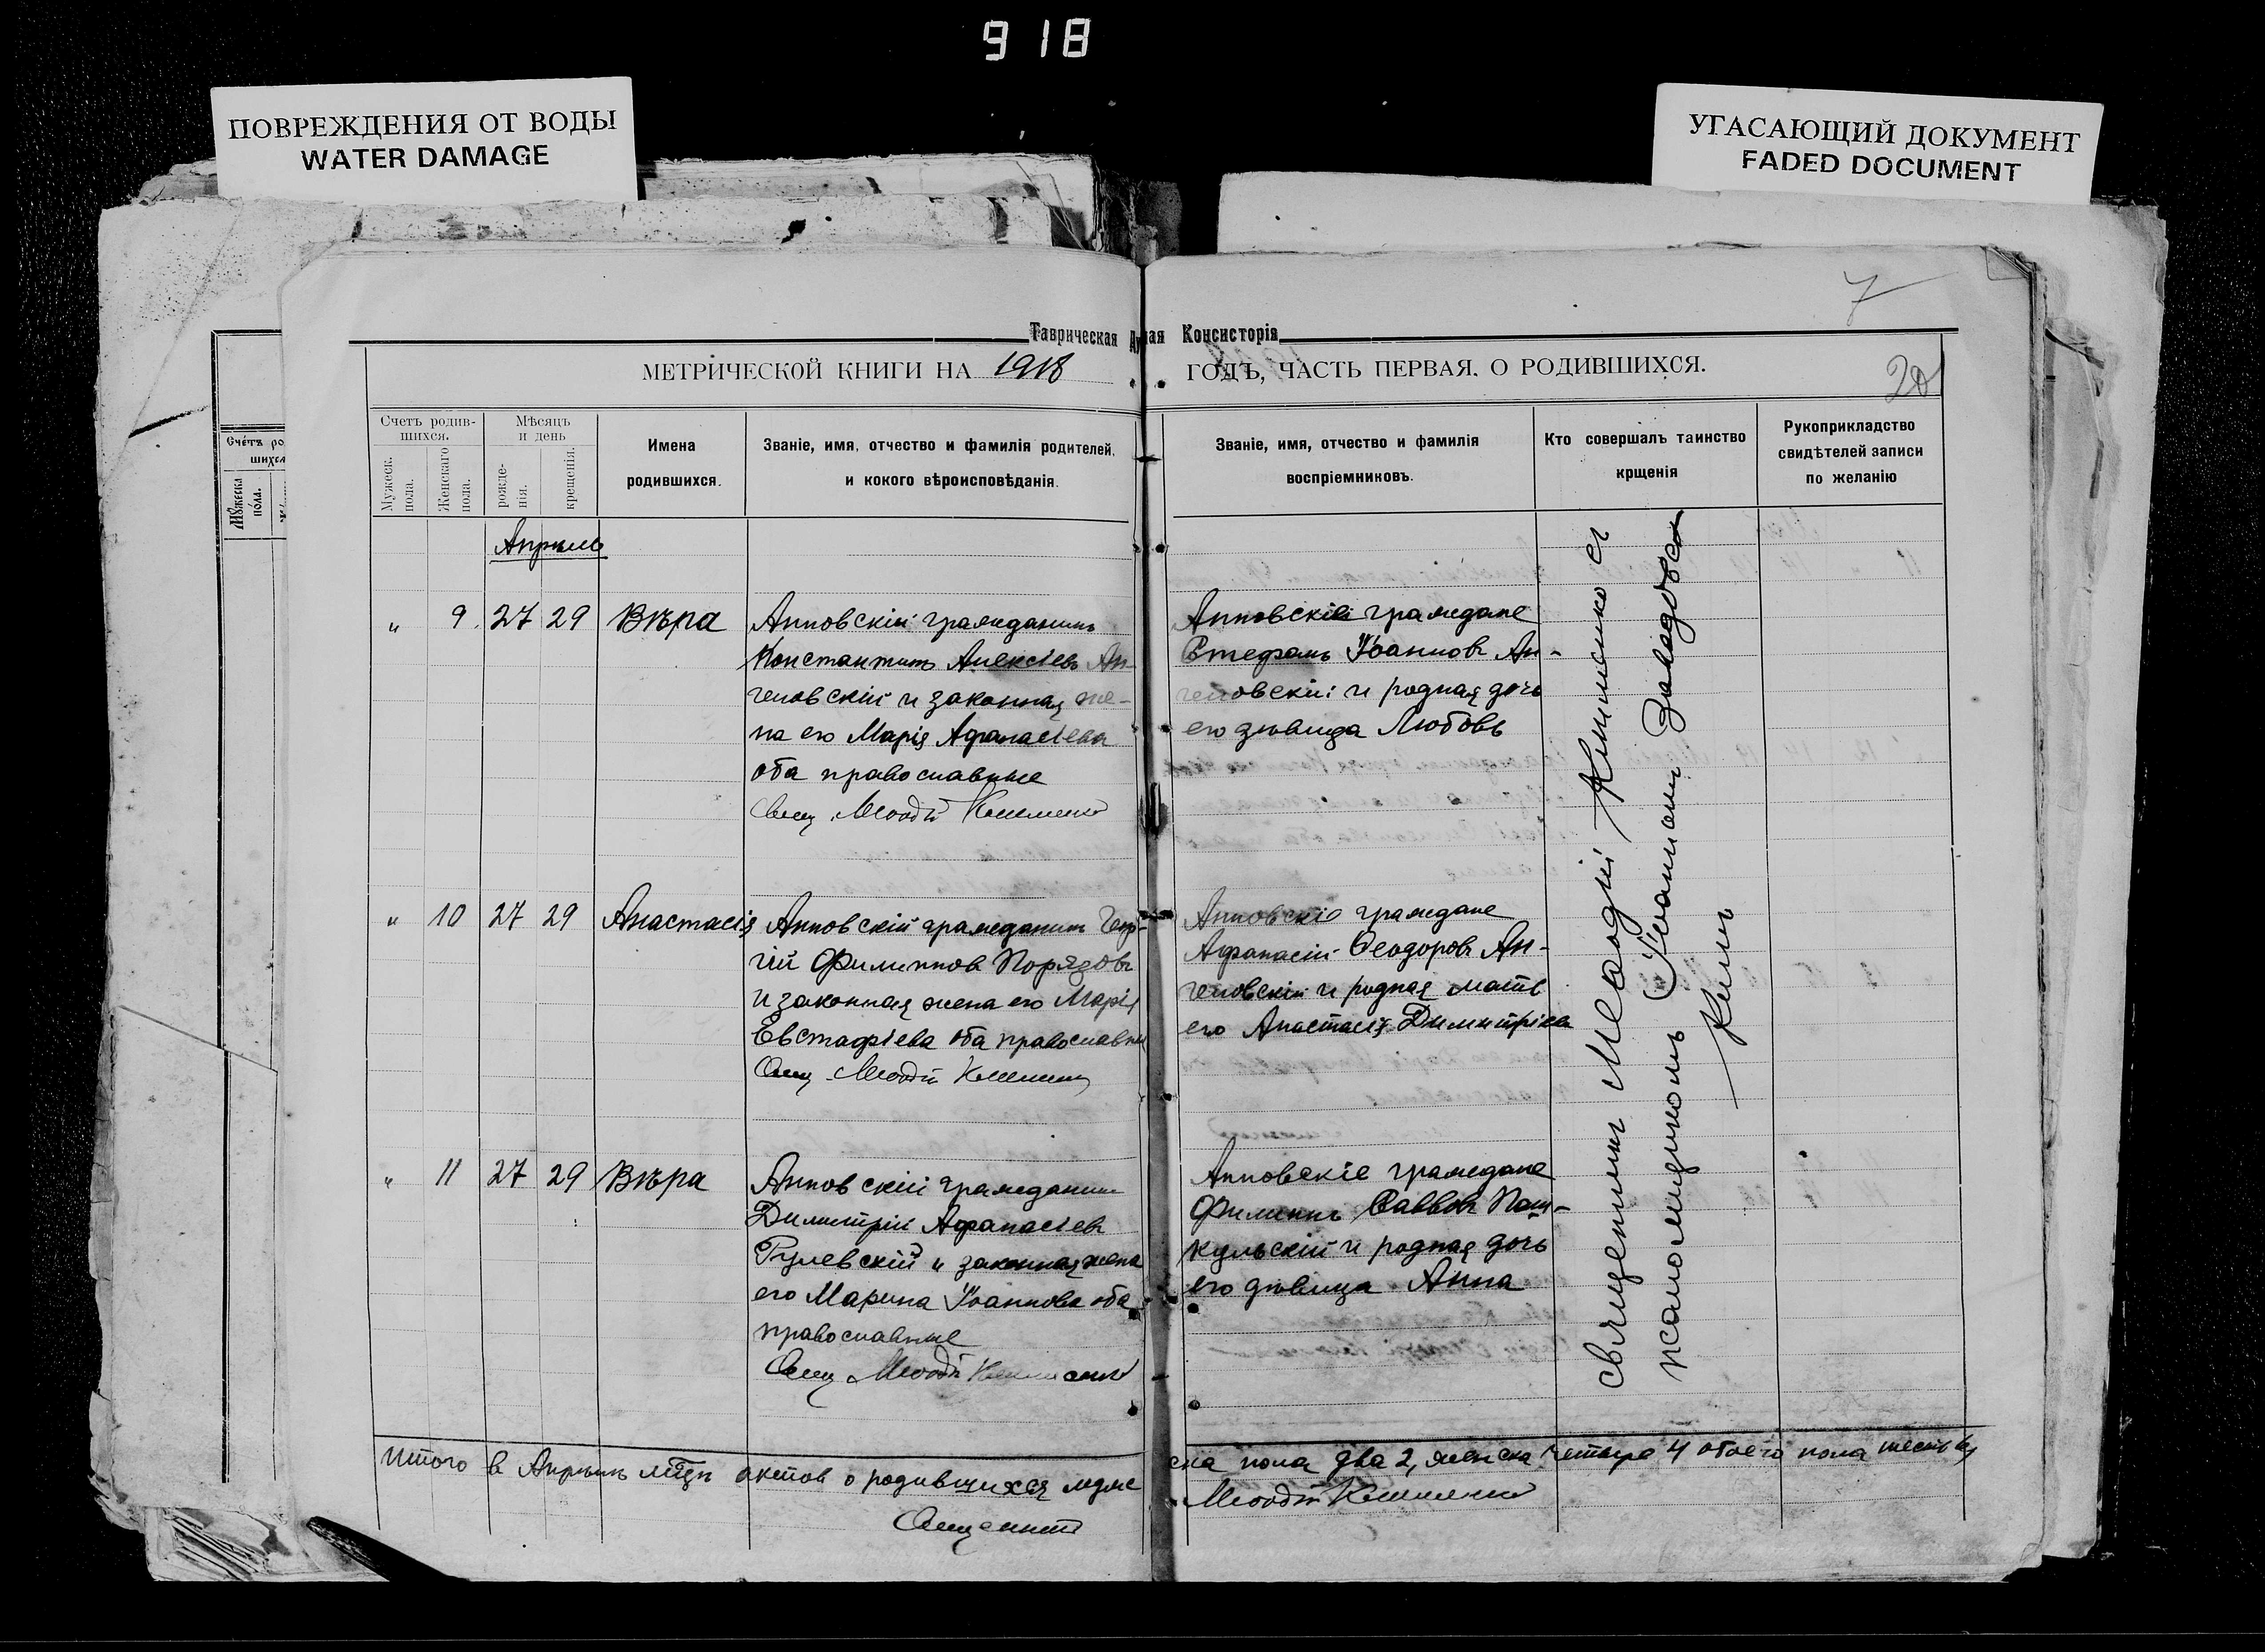 918
ПОВРЕЖДЕНИЯ ОТ ВОДЫ
WATER DAMAGE
УГАСАЮЩИЙ ДОКУМЕНТ
FADED DOCUMENT
7
Таврическая Духная Консисторія
МЕТРИЧЕСКОЙ КНИГИ НА 1918 ГОДЪ, ЧАСТЬ ПЕРВАЯ. О РОДИВШИХСЯ.
20
Счетъ родив-
шихся.
Мужеск.
пола.
Женскаго
пола.
Мѣсяцъ
и день
рожде-
нія.
крещенія.
Имена
родившихся.
Званіе, имя, отчество и фамилія родителей,
и кокого вѣроисповѣданія.
Званіе, имя, отчество и фамилія
воспріемниковъ.
Кто совершалъ таинство
крщенія
Рукоприкладство
свидѣтелей записи
по желанію
Апрѣль
" 9. 27 29 Вѣра
Анновскій гражданинъ
Константинъ Алексіевъ Ан-
геловскій и законная же-
на его Марія Афанасіева
оба православные
Свящ. Меѳодій Клименко
Анновскіе граждане
Стефанъ Іоанновъ Ан-
геловскій и родная дочь
его дѣвица Любовь
" 10 27 29 Анастасія
Анновскій гражданинъ Геор-
гій Филипповъ Порядовъ
и законная жена его Марія
Евстафіева оба православны
Свящ. Меѳодій Клименко
Анновскіе граждане
Афанасій Ѳеодоровъ Ан-
геловскій и родная мать
его Анастасія Димитріева
" 11 27 29 Вѣра
Анновскій гражданинъ
Димитрій Афанасіевъ
Гулевскій и законная жена
его Марина Іоаннова оба
православные
Свящ. Меѳодій Клименко
Анновскіе граждане
Филиппъ Саввовъ Паш-
кульскій и родная дочь
его дѣвица Анна
Священникъ Меѳодій Клименко съ
псаломщикомъ Іоанномъ
Итого в Апрѣлѣ мцѣ актов о родившихся муже
ска пола два 2, женска четыре 4 обоего пола шесть 6
Священникъ Меѳодій Клименко